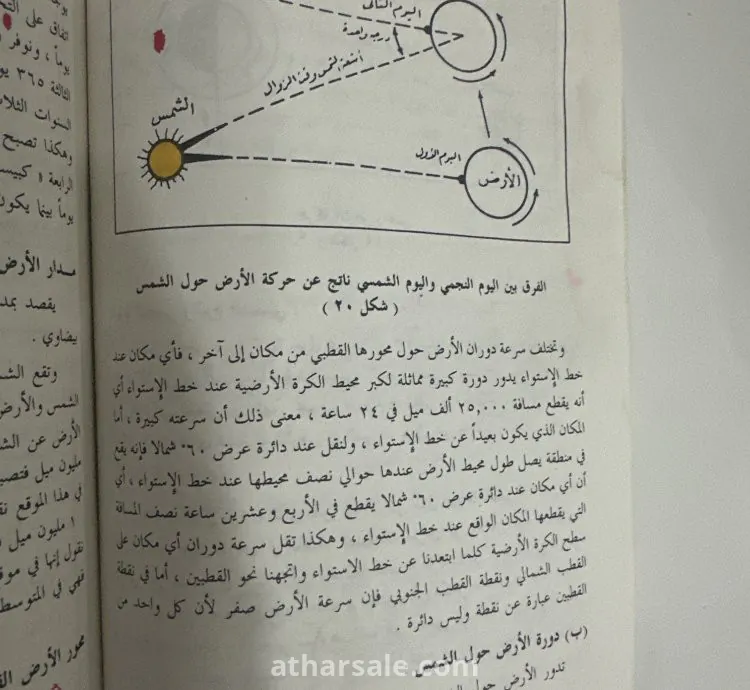 اليوم الثاني
درجة واحدة
أشعة الشمس وقت الزوال
الشمس
اليوم الأول
الأرض
الفرق بين اليوم النجمي واليوم الشمسي ناتج عن حركة الأرض حول الشمس
( شكل ٢٠ )
وتختلف سرعة دوران الأرض حول محورها القطبي من مكان إلى آخر ، فأي مكان عند
خط الإستواء يدور دورة كبيرة مماثلة لكبر محيط الكرة الأرضية عند خط الإستواء أي
أنه يقطع مسافة ٢٥,٠٠٠ ألف ميل في ٢٤ ساعة ، معنى ذلك أن سرعته كبيرة ، أما
المكان الذي يكون بعيداً عن خط الإستواء ، ولنقل عند دائرة عرض ٦٠° شمالا فإنه يقع
في منطقة يصل طول محيط الأرض عندها حوالي نصف محيطها عند خط الإستواء ، أي
أن أي مكان عند دائرة عرض ٦٠° شمالا يقطع في الأربع وعشرين ساعة نصف المسافة
التي يقطعها المكان الواقع عند خط الإستواء ، وهكذا تقل سرعة دوران أي مكان على
سطح الكرة الأرضية كلما ابتعدنا عن خط الاستواء واتجهنا نحو القطبين ، أما في نقطة
القطب الشمالي ونقطة القطب الجنوبي فإن سرعة الأرض صفر لأن كل واحد من
القطبين عبارة عن نقطة وليس دائرة .
(ب) دورة الأرض حول الشمس
تدور الأرض حول
اتفاق على
يوماً ، ونوفر
الثالثة ٣٦٥
السنوات
وهكذا تصبح
الرابعة
يوماً بينما يكون
مدار الأرض
يقصد
بيضاوي .
وتقع
الشمس والأرض
الأرض عن
مليون ميل
في هذا الموقع
١ مليون ميل
نقول إنها في
فهي في المتوسط
محور الأرض
atharsale.com